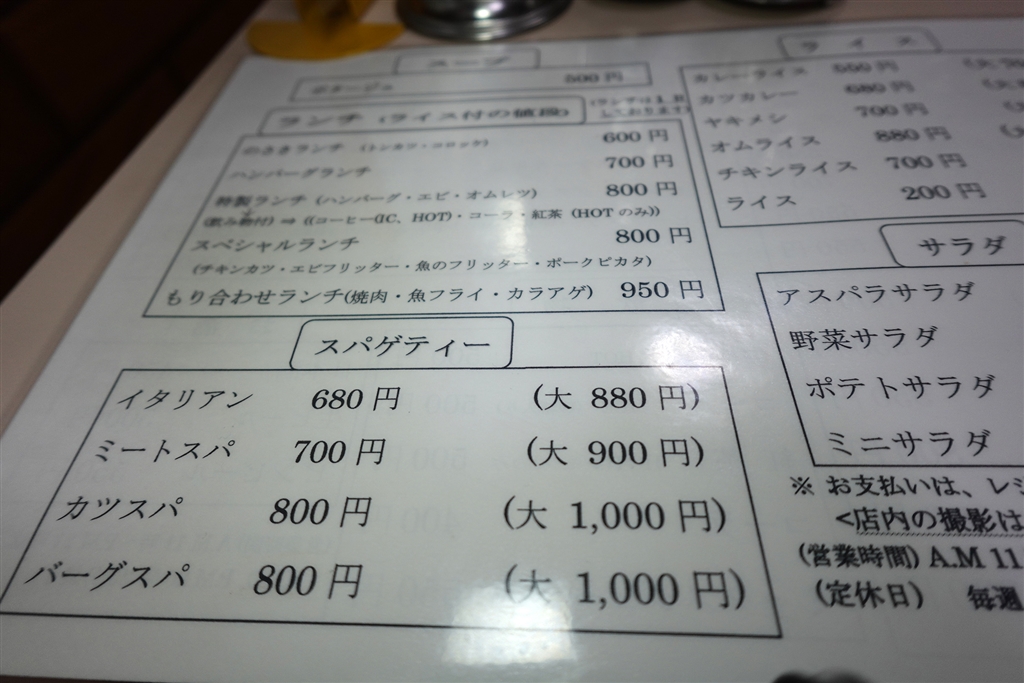 スープ
ポタージュ 500円
ランチ (ライス付の値段)
(ランチは1日
しております)
のさきランチ (トンカツ・コロッケ) 600円
ハンバーグランチ 700円
特製ランチ (ハンバーグ・エビ・オムレツ) 800円
(飲み物付) ⇒ ((コーヒー(IC、HOT)・コーラ・紅茶 (HOT のみ))
スペシャルランチ 800円
(チキンカツ・エビフリッター・魚のフリッター・ポークピカタ)
もり合わせランチ(焼肉・魚フライ・カラアゲ) 950円
スパゲティー
イタリアン 680円 (大 880円)
ミートスパ 700円 (大 900円)
カツスパ 800円 (大 1,000円)
バーグスパ 800円 (大 1,000円)
ライス
カレーライス 550円
カツカレー 680円
ヤキメシ 700円
オムライス 880円
チキンライス 700円
ライス 200円
サラダ
アスパラサラダ
野菜サラダ
ポテトサラダ
ミニサラダ
※ お支払いは、レジ
<店内の撮影は
(営業時間) A.M 11
(定休日) 毎週